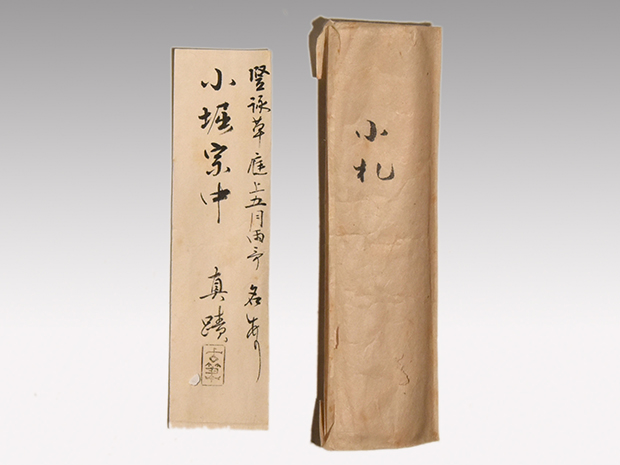 竪詠草庭上五月雨哥名あり
小堀宗中
真蹟
小札